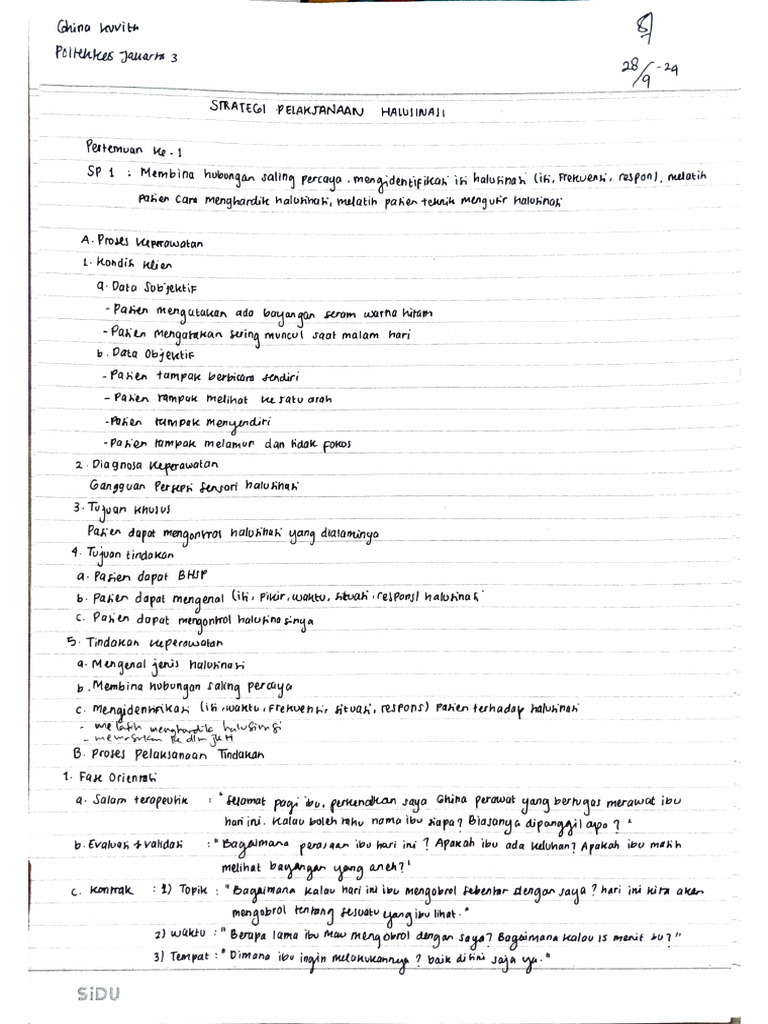 Ghina
Poltekkes Jakarta 3
28/9-24
STRATEGI PELAKSANAAN HALUSINASI
Pertemuan ke-1
SP 1 : Membina hubungan saling percaya, mengidentifikasi isi halusinasi (isi, Frekuensi, respon), melatih
pasien cara menghardik halusinasi, melatih pasien teknik mengusir halusinasi
A. Proses Keperawatan
1. Kondisi Klien
a. Data Subjektif
- Pasien mengatakan ada bayangan seram warna hitam
- Pasien mengatakan sering muncul saat malam hari
b. Data Objektif
- Pasien tampak berbicara sendiri
- Pasien tampak melihat ke satu arah
- Pasien tampak menyendiri
- Pasien tampak melamun dan tidak fokus
2. Diagnosa Keperawatan
Gangguan Persepsi Sensori halusinasi
3. Tujuan Khusus
Pasien dapat mengontros halusinasi yang dialaminya
4. Tujuan tindakan
a. Pasien dapat BHSP
b. Pasien dapat mengenal (isi, pikir, waktu, situasi, respons) halusinasi
c. Pasien dapat mengontrol halusinasinya
5. Tindakan Keperawatan
a. Mengenal jenis halusinasi
b. Membina hubungan saling percaya
c. Mengidentifikasi (isi, waktu, frekuensi, situasi, respons) pasien terhadap halusinasi
- melatih menghardik halusinasi
- memasukan ke dlm
B. Proses Pelaksanaan Tindakan
1. Fase Orientasi
a. Salam terapeutik : "Selamat pagi ibu, perkenalkan saya Ghina perawat yang bertugas merawat ibu
hari ini. Kalau boleh tahu nama ibu siapa? Biasanya dipanggil apa?"
b. Evaluasi + validasi : "Bagaimana perasaan ibu hari ini? Apakah ibu ada keluhan? Apakah ibu masih
melihat bayangan yang aneh?"
c. Kontrak : 1) Topik : "Bagaimana kalau hari ini ibu mengobrol sebentar dengan saya? hari ini kita akan
mengobrol tentang sesuatu yang ibu lihat."
2) Waktu : "Berapa lama ibu mau mengobrol dengan saya? Bagaimana kalau 15 menit bu?"
3) Tempat : "Dimana ibu ingin melakukannya? baik disini saja ya."
SiDU